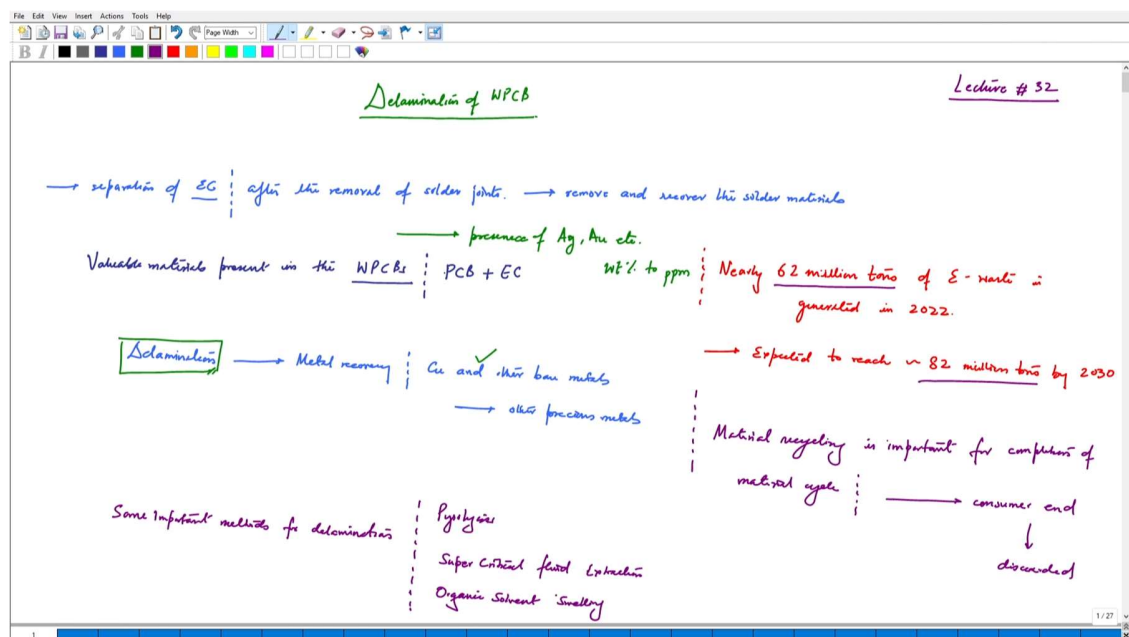 File Edit View Insert Actions Tools Help
Page Width
B I
Delamination of WPCB
Lecture # 32
→ separation of EC after the removal of solder joints. → remove and recover the solder materials
→ presence of Ag, Au etc.
Valuable materials present in the WPCBs PCB + EC
wt% to ppm
Nearly 62 million tons of E-waste is
generated in 2022.
→ Expected to reach ~ 82 million tons by 2030
Delamination → Metal recovery Cu and other base metals
→ other precious metals
Material recycling is important for completion of
material cycle → consumer end
↓
discarded
Some important methods for delamination
Pyrolysis
Super Critical fluid Extraction
Organic Solvent Swelling
1 / 27
1